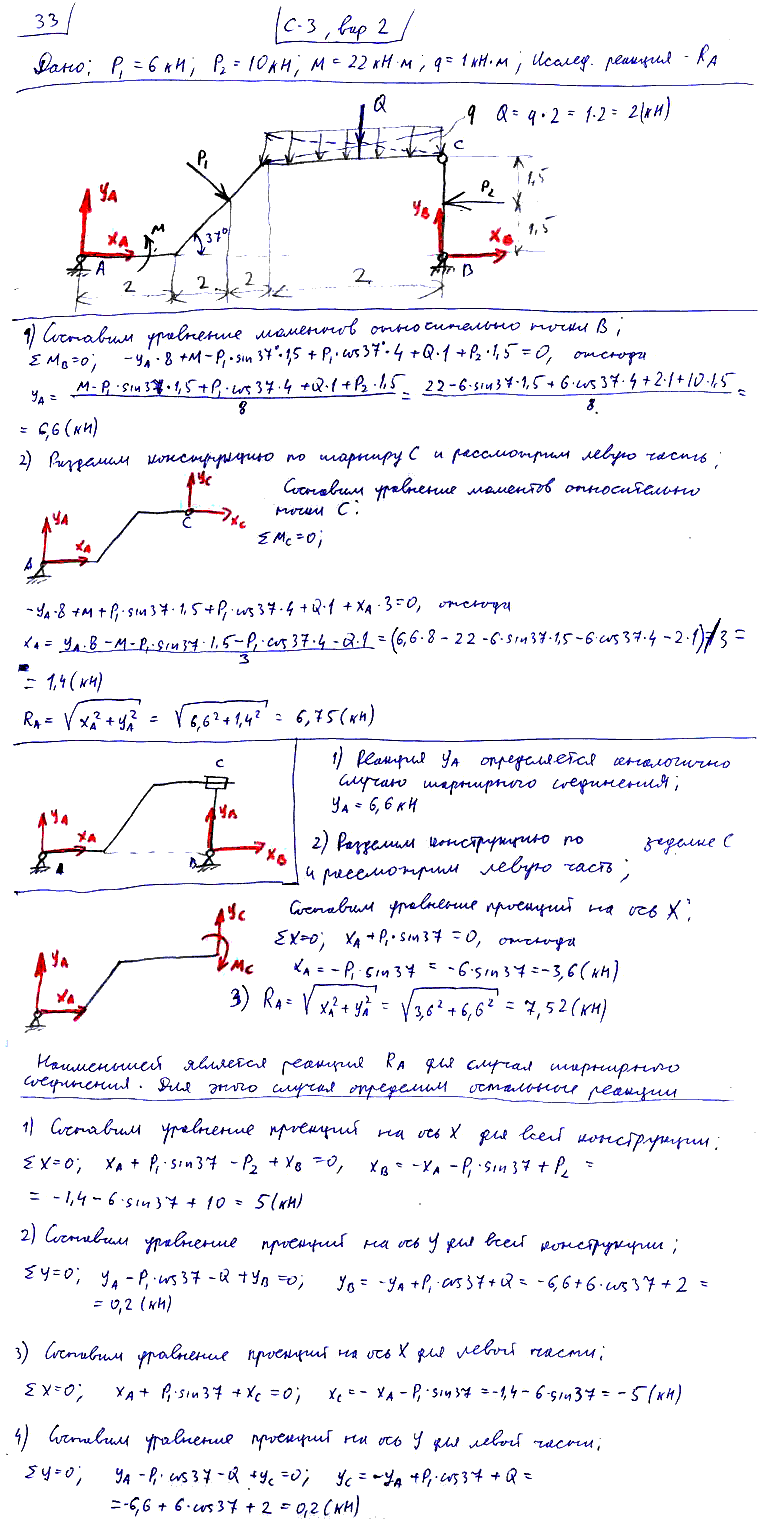 33
С-3, вар 2
Дано: P₁ = 6 кН; P₂ = 10 кН; M = 22 кН·м; q = 1 кН·м; Исслед. реакция - R_A
Q
q Q = q·2 = 1·2 = 2(кН)
C
P₁
1,5
Y_A
P₂
Y_B
X_A
M
37°
1,5
X_B
A
B
2
2
2
2
1) Составим уравнение моментов относительно точки B;
ΣM_B=0; -Y_A·8+M-P₁·sin37°·1,5+P₁·cos37°·4+Q·1+P₂·1,5=0, отсюда
Y_A = (M-P₁·sin37·1,5+P₁·cos37·4+Q·1+P₂·1,5)/8 = (22-6·sin37·1,5+6·cos37·4+2·1+10·1,5)/8 =
= 6,6(кН)
2) Разделим конструкцию по шарниру C и рассмотрим левую часть;
Y_C
Составим уравнение моментов относительно
точки C:
Y_A
C
X_C
ΣM_C=0;
X_A
A
-Y_A·8+M+P₁·sin37·1,5+P₁·cos37·4+Q·1+X_A·3=0, отсюда
X_A = (Y_A·8-M-P₁·sin37·1,5-P₁·cos37·4-Q·1)/3 = (6,6·8-22-6·sin37·1,5-6·cos37·4-2·1)/3 =
= 1,4(кН)
R_A = √(X_A²+Y_A²) = √(6,6²+1,4²) = 6,75(кН)
C
1) Реакция Y_A определяется аналогично
случаю шарнирного соединения;
Y_A = 6,6 кН
Y_B
Y_A
X_A
2) Разделим конструкцию по заделке C
X_B
A
B
и рассмотрим левую часть;
Y_C
Составим уравнение проекций на ось X:
ΣX=0; X_A+P₁·sin37=0, отсюда
Y_A
M_C
X_A = -P₁·sin37 = -6·sin37=-3,6(кН)
X_A
3) R_A = √(X_A²+Y_A²) = √(3,6²+6,6²) = 7,52(кН)
Наименьшей является реакция R_A для случая шарнирного
соединения. Для этого случая определим остальные реакции
1) Составим уравнение проекций на ось X для всей конструкции:
ΣX=0; X_A+P₁·sin37-P₂+X_B=0, X_B=-X_A-P₁·sin37+P₂ =
= -1,4-6·sin37+10 = 5(кН)
2) Составим уравнение проекций на ось Y для всей конструкции;
ΣY=0; Y_A-P₁·cos37-Q+Y_B=0; Y_B=-Y_A+P₁·cos37+Q = -6,6+6·cos37+2 =
= 0,2(кН)
3) Составим уравнение проекций на ось X для левой части;
ΣX=0; X_A+P₁·sin37+X_C=0; X_C=-X_A-P₁·sin37=-1,4-6·sin37=-5(кН)
4) Составим уравнение проекций на ось Y для левой части;
ΣY=0; Y_A-P₁·cos37-Q+Y_C=0; Y_C=-Y_A+P₁·cos37+Q =
=-6,6+6·cos37+2=0,2(кН)